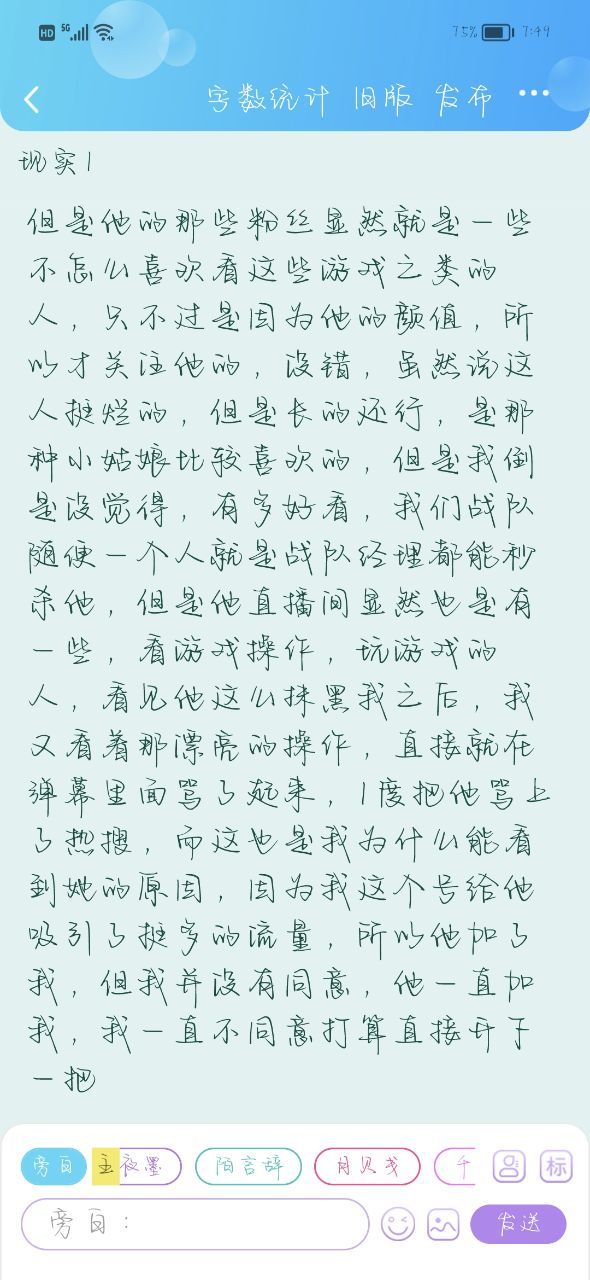 HD 5G 75% 7:49
字数统计 旧版 发布 •••
现实1
但是他的那些粉丝显然就是一些
不怎么喜欢看这些游戏之类的
人，只不过是因为他的颜值，所
以才关注他的，没错，虽然说这
人挺烂的，但是长的还行，是那
种小姑娘比较喜欢的，但是我倒
是没觉得，有多好看，我们战队
随便一个人就是战队经理都能秒
杀他，但是他直播间显然也是有
一些，看游戏操作，玩游戏的
人，看见他这么抹黑我之后，我
又看着那漂亮的操作，直接就在
弹幕里面骂了起来，1度把他骂上
了热搜，而这也是我为什么能看
到她的原因，因为我这个号给他
吸引了挺多的流量，所以他加了
我，但我并没有同意，他一直加
我，我一直不同意打算直接开下
一把
旁白 主 夜墨 陌言辞 千 标
旁白： 发送